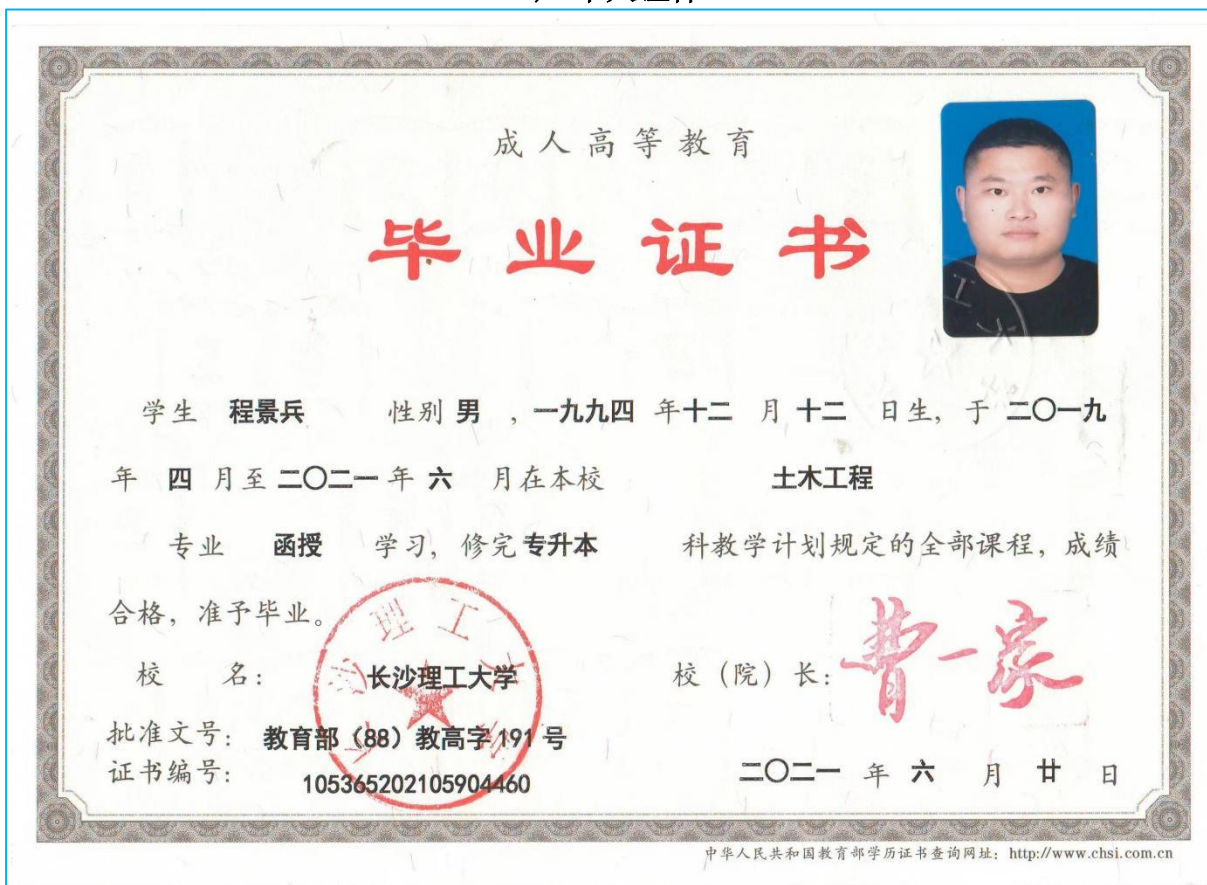 成人高等教育
毕业证书
学生 程景兵 性别 男 ，一九九四 年十二 月 十二 日生，于 二〇一九
年 四 月至 二〇二一 年 六 月在本校 土木工程
专业 函授 学习，修完 专升本 科教学计划规定的全部课程，成绩
合格，准予毕业。
校 名： 长沙理工大学 校（院）长：
批准文号： 教育部（88）教高字 191 号
证书编号： 105365202105904460 二〇二一 年 六 月 廿 日
长沙理工大学
中华人民共和国教育部学历证书查询网址：http://www.chsi.com.cn